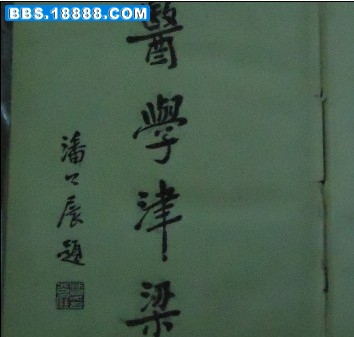 BBS.18888.COM
醫學津梁
潘公展題